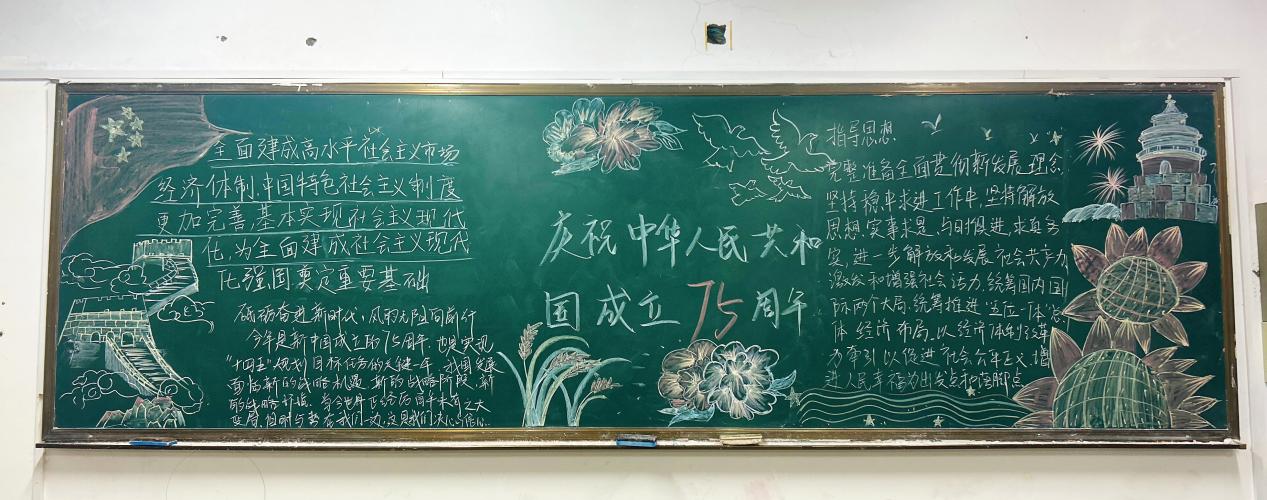 全面建成高水平社会主义市场
经济体制,中国特色社会主义制度
更加完善基本实现社会主义现代
化,为全面建成社会主义现代
化强国奠定重要基础
砥砺奋进新时代,风雨无阻向前行
今年是新中国成立的75周年,也是实现
"十四五"规划目标任务的关键一年,我国发展
面临新的战略机遇、新的战略阶段、新
的战略环境,
变局,但时与势在我们一边,这是我们决心
庆祝中华人民共和
国成立75周年
指导思想:
完整准备全面贯彻新发展理念,
坚持稳中求进工作中,坚持解放
思想,实事求是,与时俱进,求真务
实,进一步解放和发展社会共产力
激发和增强社会活力,统筹国内国
际两个大局,统筹推进"五位一体"总
体经济布局,以经济体制改革
为牵引以促进社会公平正义,增
进人民幸福为出发点和落脚点